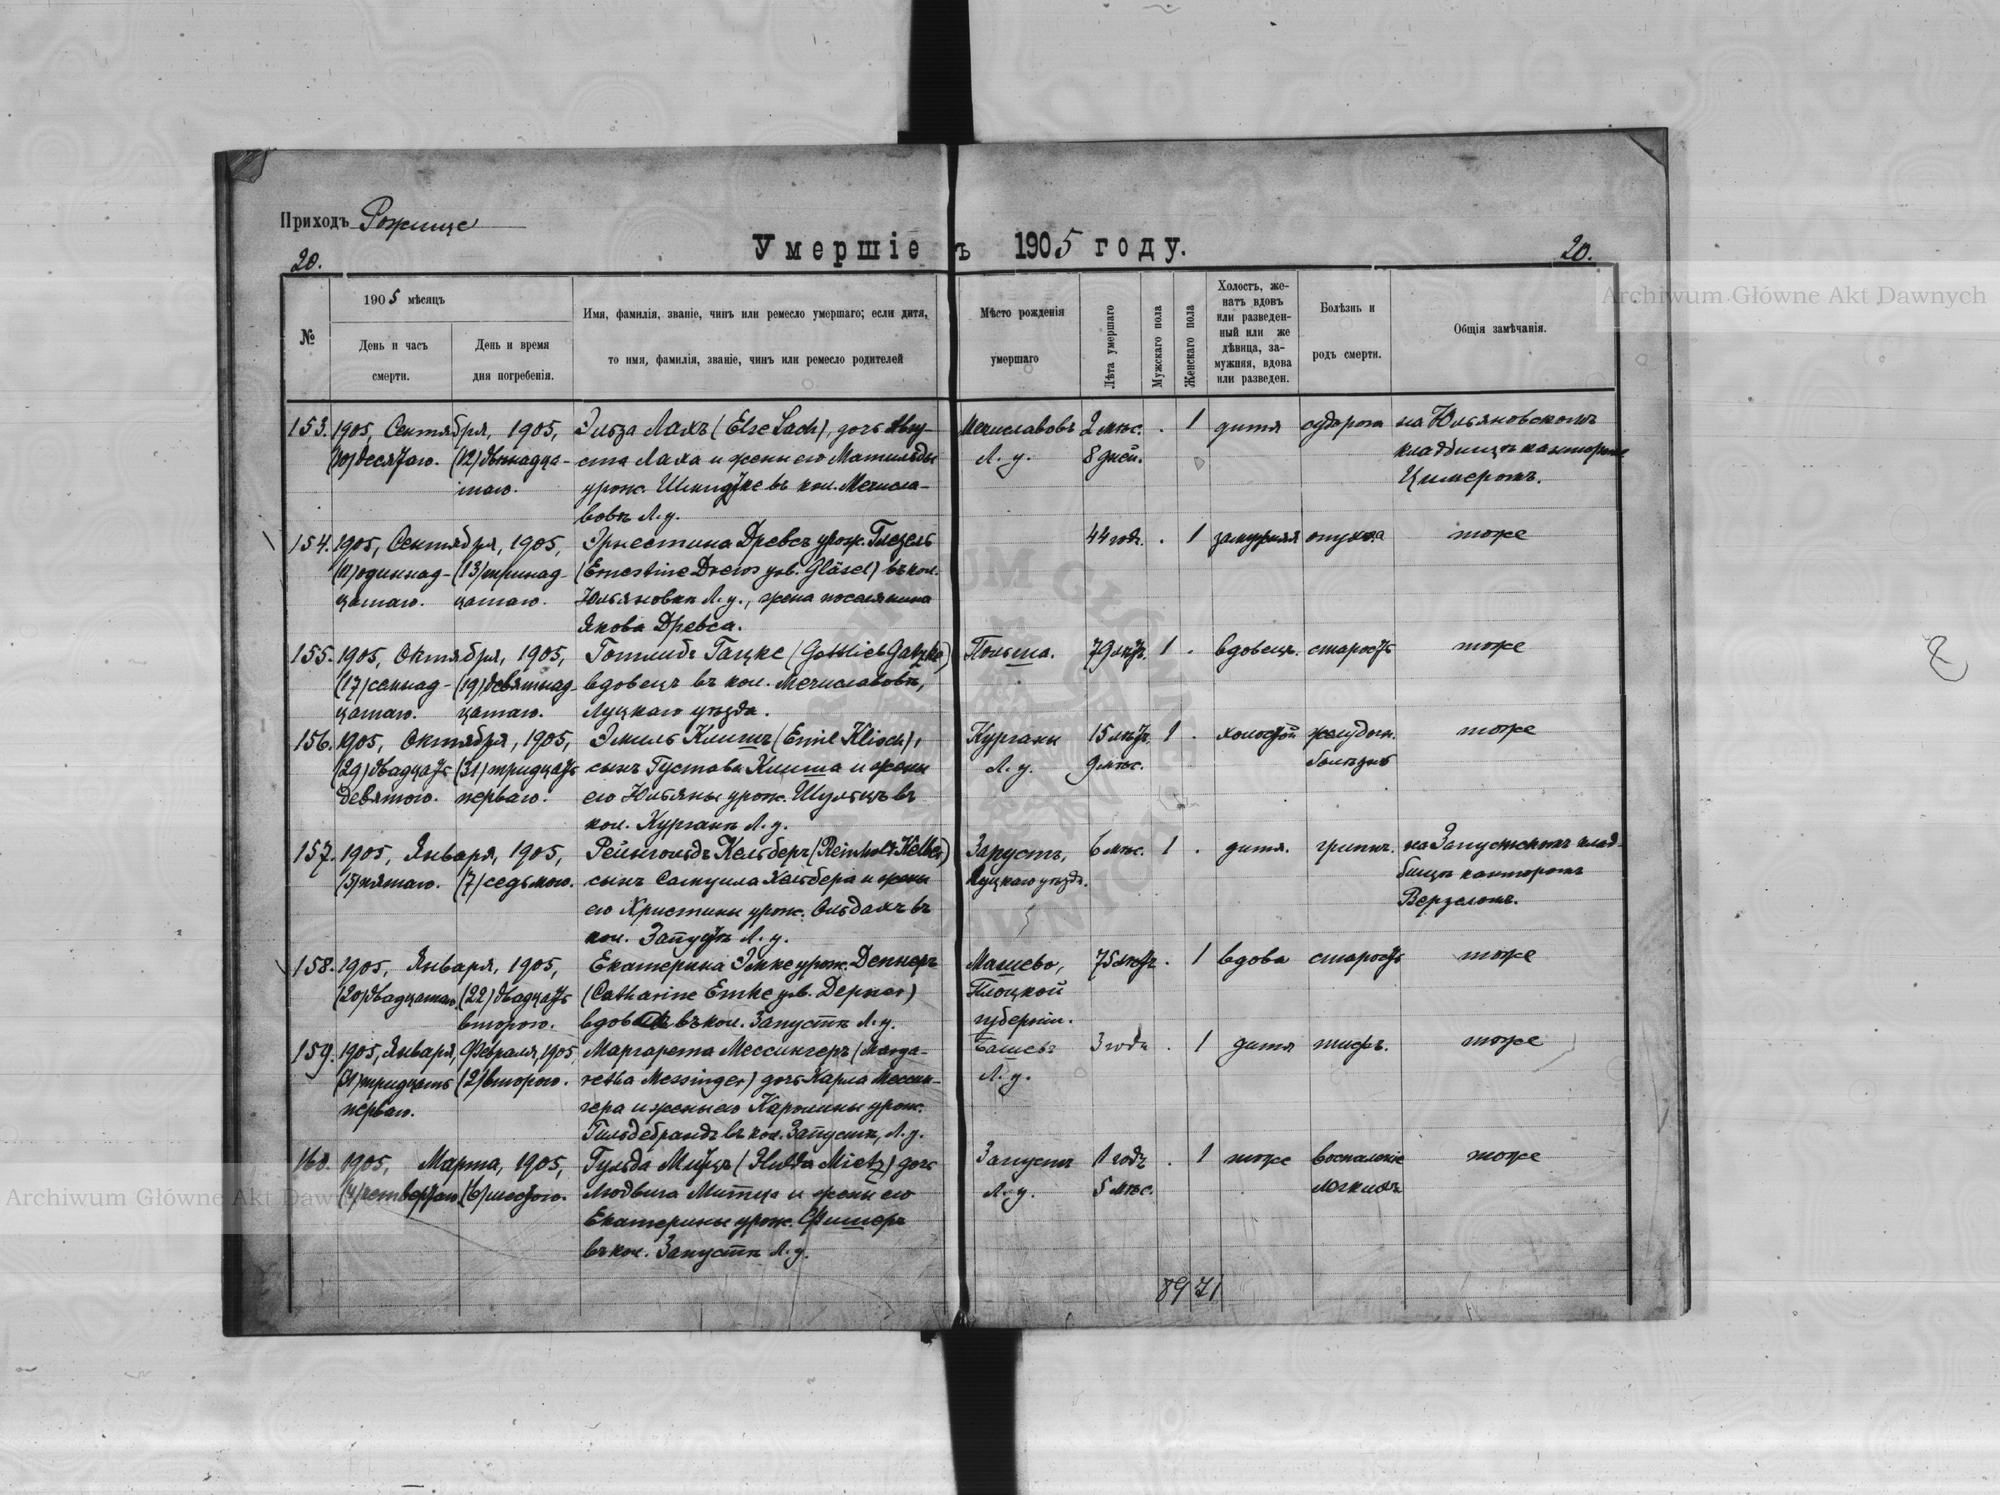 Приходъ Рожище
Умершіе въ 1905 году.
20.
20.
№
1905 мѣсяцъ
День и часъ
смерти.
День и время
дня погребенія.
Имя, фамилія, званіе, чинъ или ремесло умершаго; если дитя,
то имя, фамилія, званіе, чинъ или ремесло родителей
Мѣсто рожденія
умершаго
Лѣта умершаго
Мужскаго пола
Женскаго пола
Холостъ, же-
натъ вдовъ
или разведен-
ный или же
дѣвица, за-
мужняя, вдова
или разведен.
Болѣзнь и
родъ смерти.
Общія замѣчанія.
153. 1905, Сентября, 1905, Эльза Лахъ (Else Lach), дочь Авгу- Мечиславовъ 2 мѣс. . 1 дитя на Юльяновскомъ
(10) десятаго. (12) двѣнадца- ста Лаха и жены его Матильды Л. у. 8 дней. кладбищѣ канторомъ
таго. урож. въ кол. Мечисла- Цимеромъ.
вовъ Л. у.
154. 1905, Сентября, 1905, Эрнестина Древсъ урож. Глезель 44 год. . 1 замужняя тоже
(11) одиннад- (13) тринад- (Ernestine Drews geb. Gläsel) въ кол.
цатаго. цатаго. Юльяновкѣ Л. у., жена поселянина
Якова Древса.
155. 1905, Октября, 1905, Готлибъ Гацке (Gottlieb Gatzke) Польша. 79 лѣтъ. 1 . вдовецъ. старость тоже
(17) семнад- (19) девятнад- вдовецъ въ кол. Мечиславовѣ,
цатаго. цатаго. Луцкаго уѣзда.
156. 1905, Октября, 1905, Эмиль Клишъ (Emil Klisch), Курганы 15 лѣтъ 1 . холостой желудоч. тоже
(29) двадцать (31) тридцать сынъ Густава Клиша и жены Л. у. 9 мѣс. болѣзнь
девятаго. перваго. его Юльяны урож. Шульцъ въ
кол. Курганѣ Л. у.
157. 1905, Января, 1905, Рейнгольдъ Кельберъ (Reinhold Kelber) Запустъ, 6 мѣс. 1 . дитя. гриппъ. на Запустскомъ клад-
(5) пятаго. (7) седьмого. сынъ Самуила Кельбера и жены Луцкаго уѣзда. бищѣ канторомъ
его Христины урож. Ольдахъ въ
кол. Запустъ Л. у.
158. 1905, Января, 1905, Екатерина Эмке урож. Депнеръ Машево, 75 лѣтъ. . 1 вдова старость тоже
(20) двадцатаго (22) двадцать (Catharine Emke geb. ) Плоцкой
второго. вдова въ кол. Запустѣ Л. у. губерніи.
159. 1905, Января, Февраля, 1905 Маргарета Мессингеръ (Marga- Башевъ 3 года . 1 дитя тифъ. тоже
(31) тридцать (2) второго. retha Messinger) дочь Карла Мессин- Л. у.
перваго. гера и жены его Каролины урож.
Гильдебрандъ въ кол. Запустѣ, Л. у.
160. 1905, Марта, 1905, Гульда Митцъ (Hulda Mietz) дочь Запустъ 1 годъ . 1 тоже воспаленіе тоже
(4) четвертаго (6) шестого. Людвига Митца и жены его Л. у. 5 мѣс. легкихъ
Екатерины урож. Фишеръ
въ кол. Запустѣ Л. у.
89 71
Archiwum Główne Akt Dawnych
Archiwum Główne Akt Dawnych